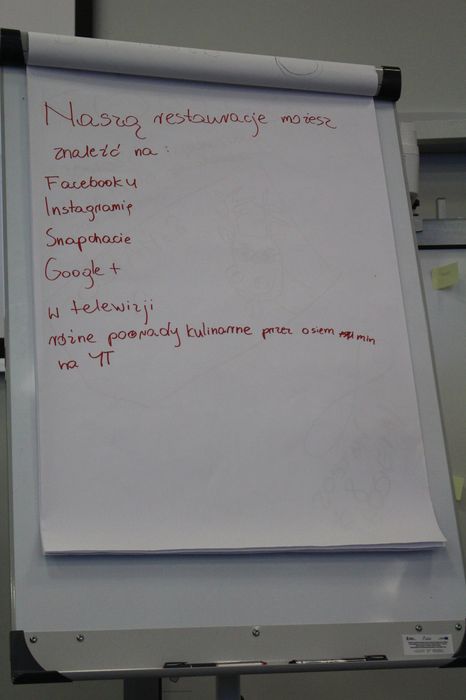 Naszą restaurację możesz
znaleźć na:
Facebooku
Instagramię
Snapchacie
Google+
w telewizji
różne poorady kulinarne przez osiem min
na YT